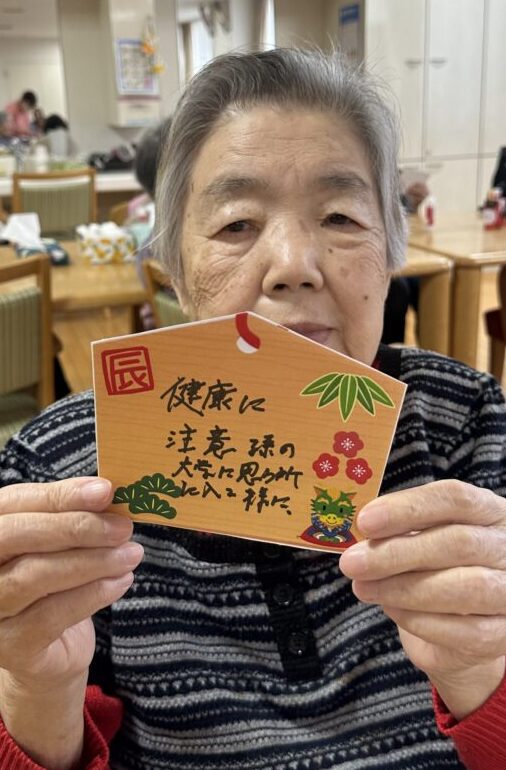 辰
健康に
注意 孫の
大学に思う所
に入る様に、